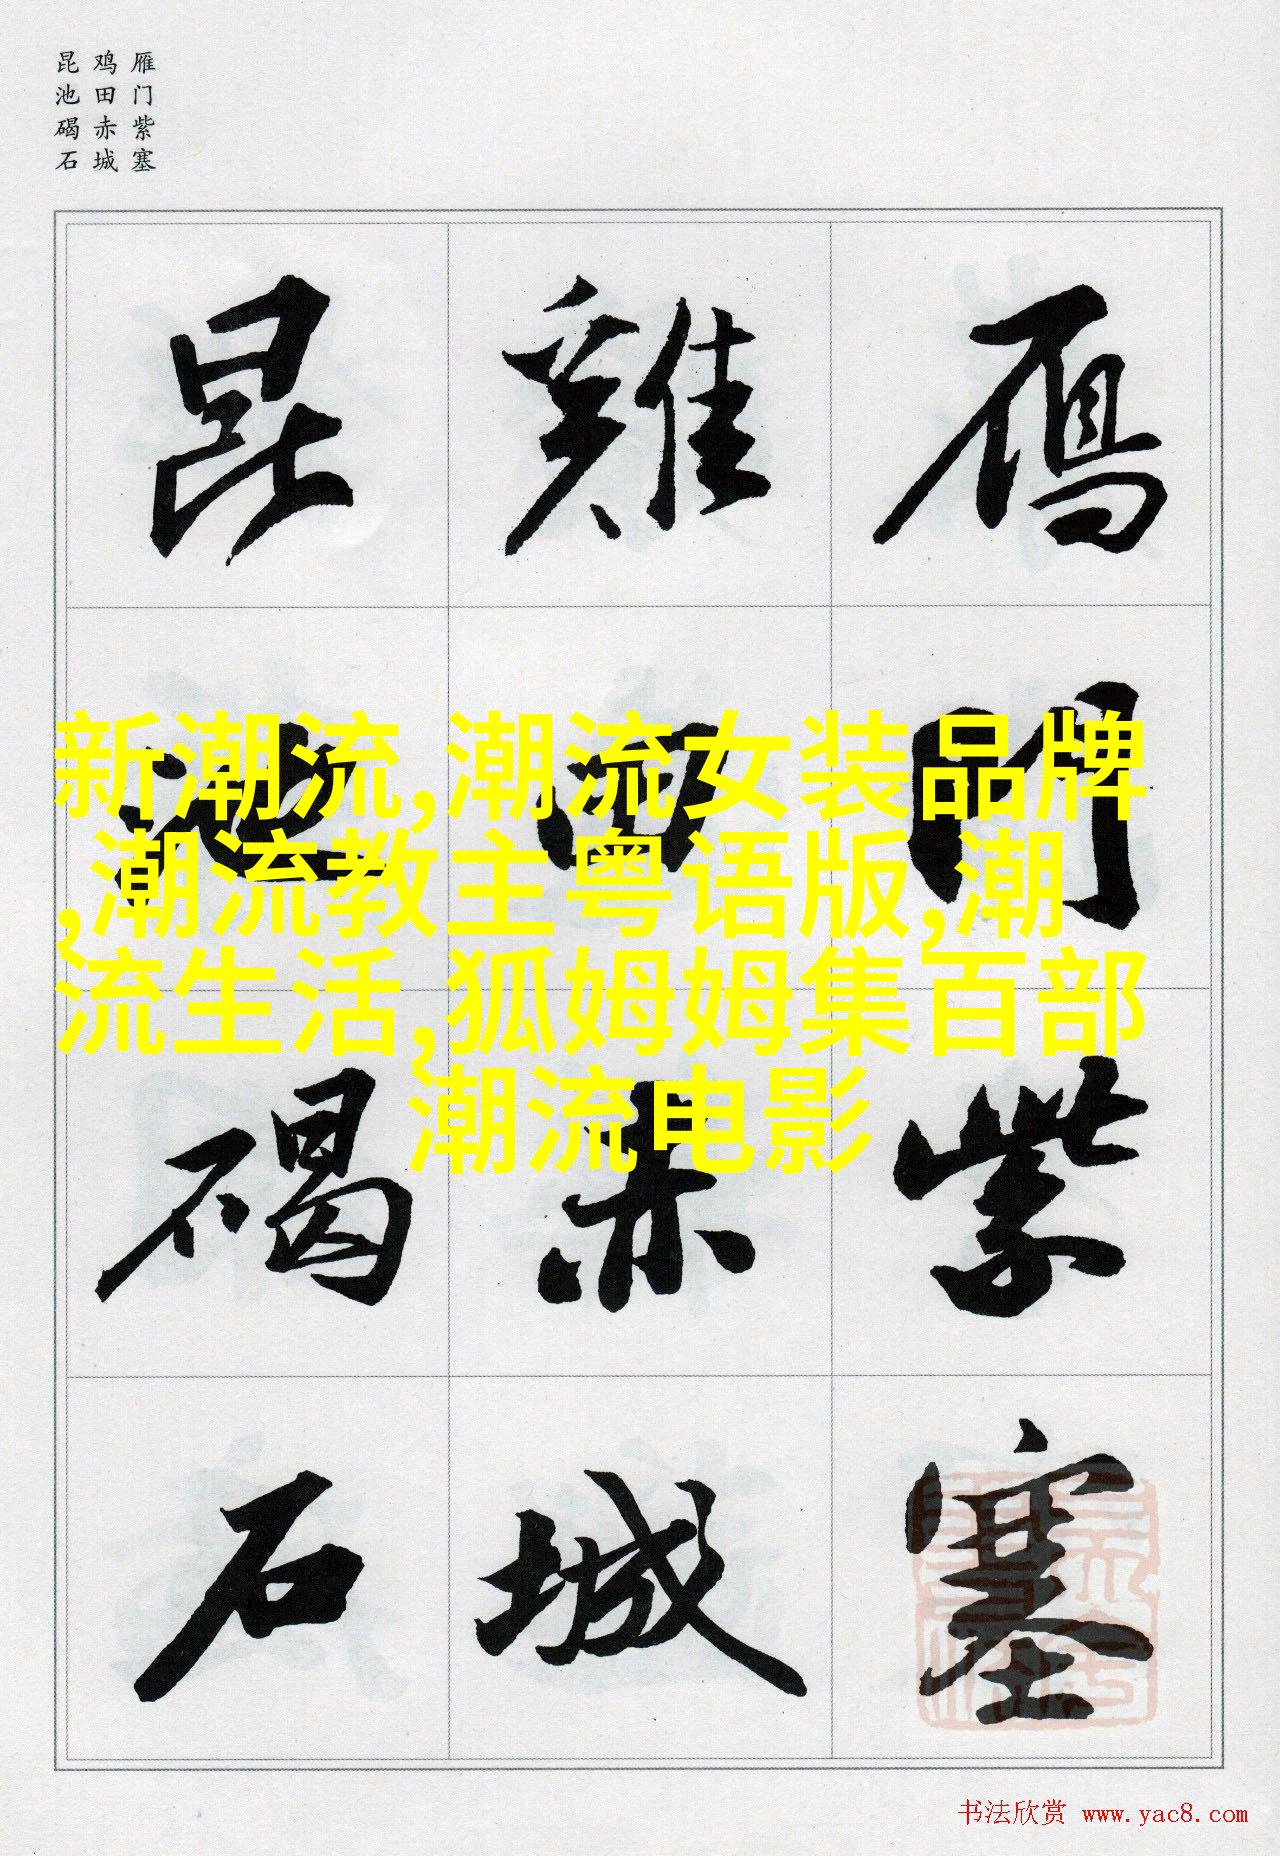 雁门紫塞
鸡田赤城
昆池碣石
鴈門紫塞
雞田赤城
昆池碣石
新潮流,潮流女装品牌
,潮流教主粤语版,潮
流生活,狐姆姆集百部
潮流电影
书法欣赏 www.yac8.com